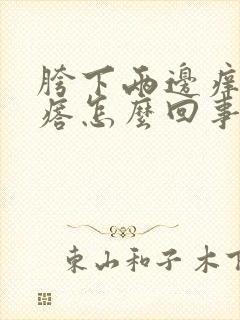 胯下两邊痒
瘩怎麼回事
東山和子木下